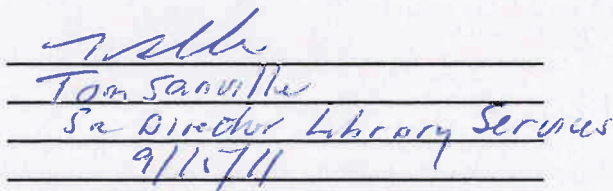 Tom Sanville
Sr Director Library Services
9/15/11